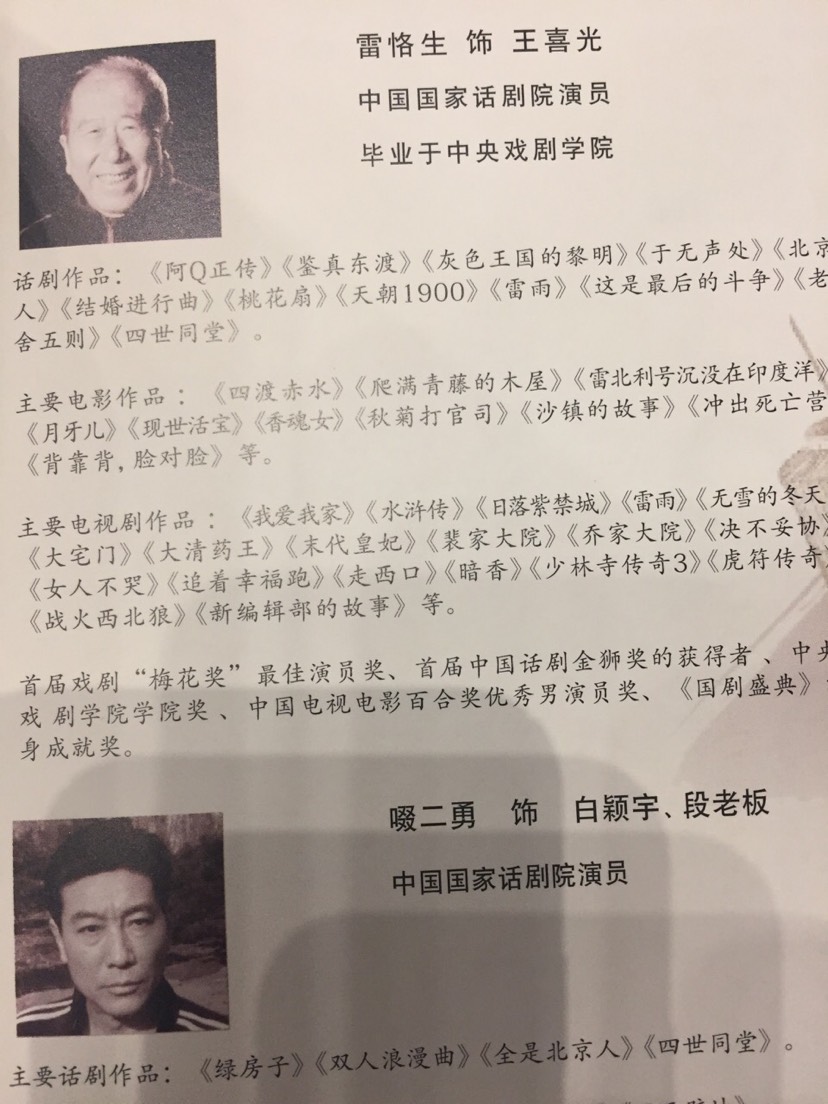 雷恪生 饰 王喜光
中国国家话剧院演员
毕业于中央戏剧学院
话剧作品：《阿Q正传》《鉴真东渡》《灰色王国的黎明》《于无声处》《北京
人》《结婚进行曲》《桃花扇》《天朝1900》《雷雨》《这是最后的斗争》《老
舍五则》《四世同堂》。
主要电影作品：《四渡赤水》《爬满青藤的木屋》《雷北利号沉没在印度洋》
《月牙儿》《现世活宝》《香魂女》《秋菊打官司》《沙镇的故事》《冲出死亡营
《背靠背，脸对脸》等。
主要电视剧作品：《我爱我家》《水浒传》《日落紫禁城》《雷雨》《无雪的冬天
《大宅门》《大清药王》《末代皇妃》《裴家大院》《乔家大院》《决不妥协》
《女人不哭》《追着幸福跑》《走西口》《暗香》《少林寺传奇3》《虎符传奇》
《战火西北狼》《新编辑部的故事》等。
首届戏剧“梅花奖”最佳演员奖、首届中国话剧金狮奖的获得者、中央
戏 剧学院学院奖、中国电视电影百合奖优秀男演员奖、《国剧盛典》
身成就奖。
啜二勇 饰 白颖宇、段老板
中国国家话剧院演员
主要话剧作品：《绿房子》《双人浪漫曲》《全是北京人》《四世同堂》。